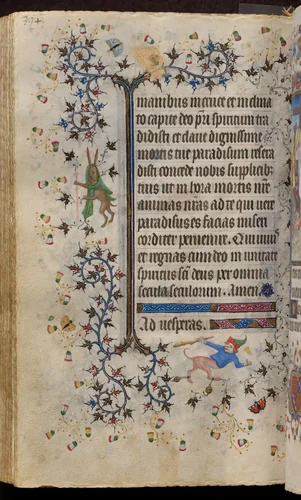 394
manibus meritie et inclina
to capite deo pri spiritum tra
didisti et clave dignissime
mortis tue paradisum resera
sti concede nobis supplicib;
tuis ut in hora mortis nre
animas nras ad te qui vere
paradisus es facias miseri
corditer pervenire. Qui vivis
et regnas cum deo in unitate
spiritus sci deus per omnia
secula seculorum. Amen.
Ad vesperas.